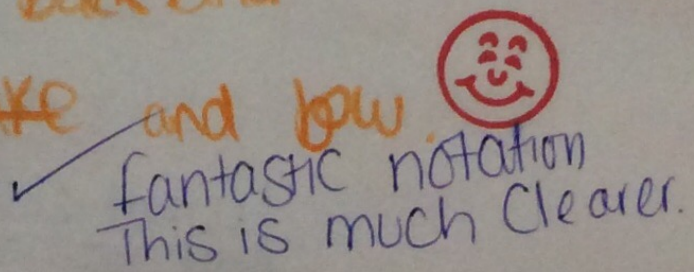 and bow.
fantastic notation
This is much Clearer.